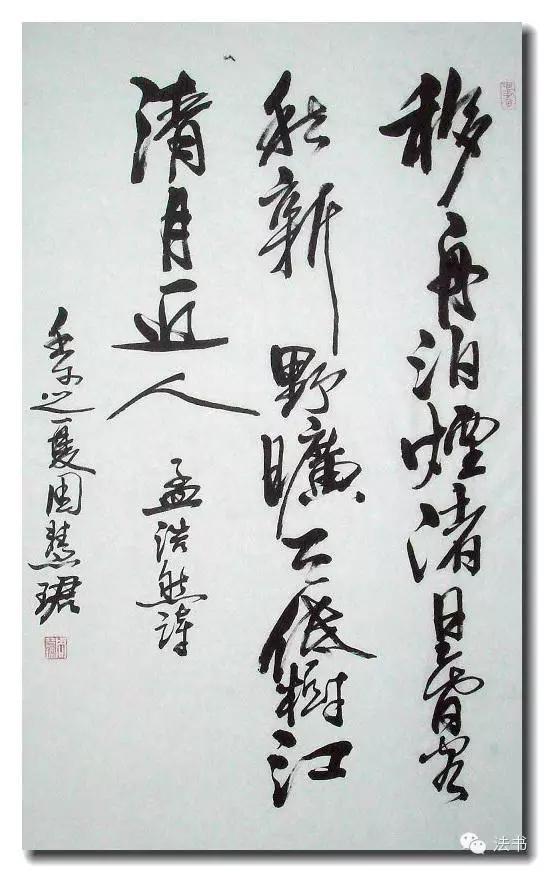 移舟泊煙渚日暮客
愁新野曠天低樹江
清月近人
孟浩然詩
壬午之夏周慧珺
法书